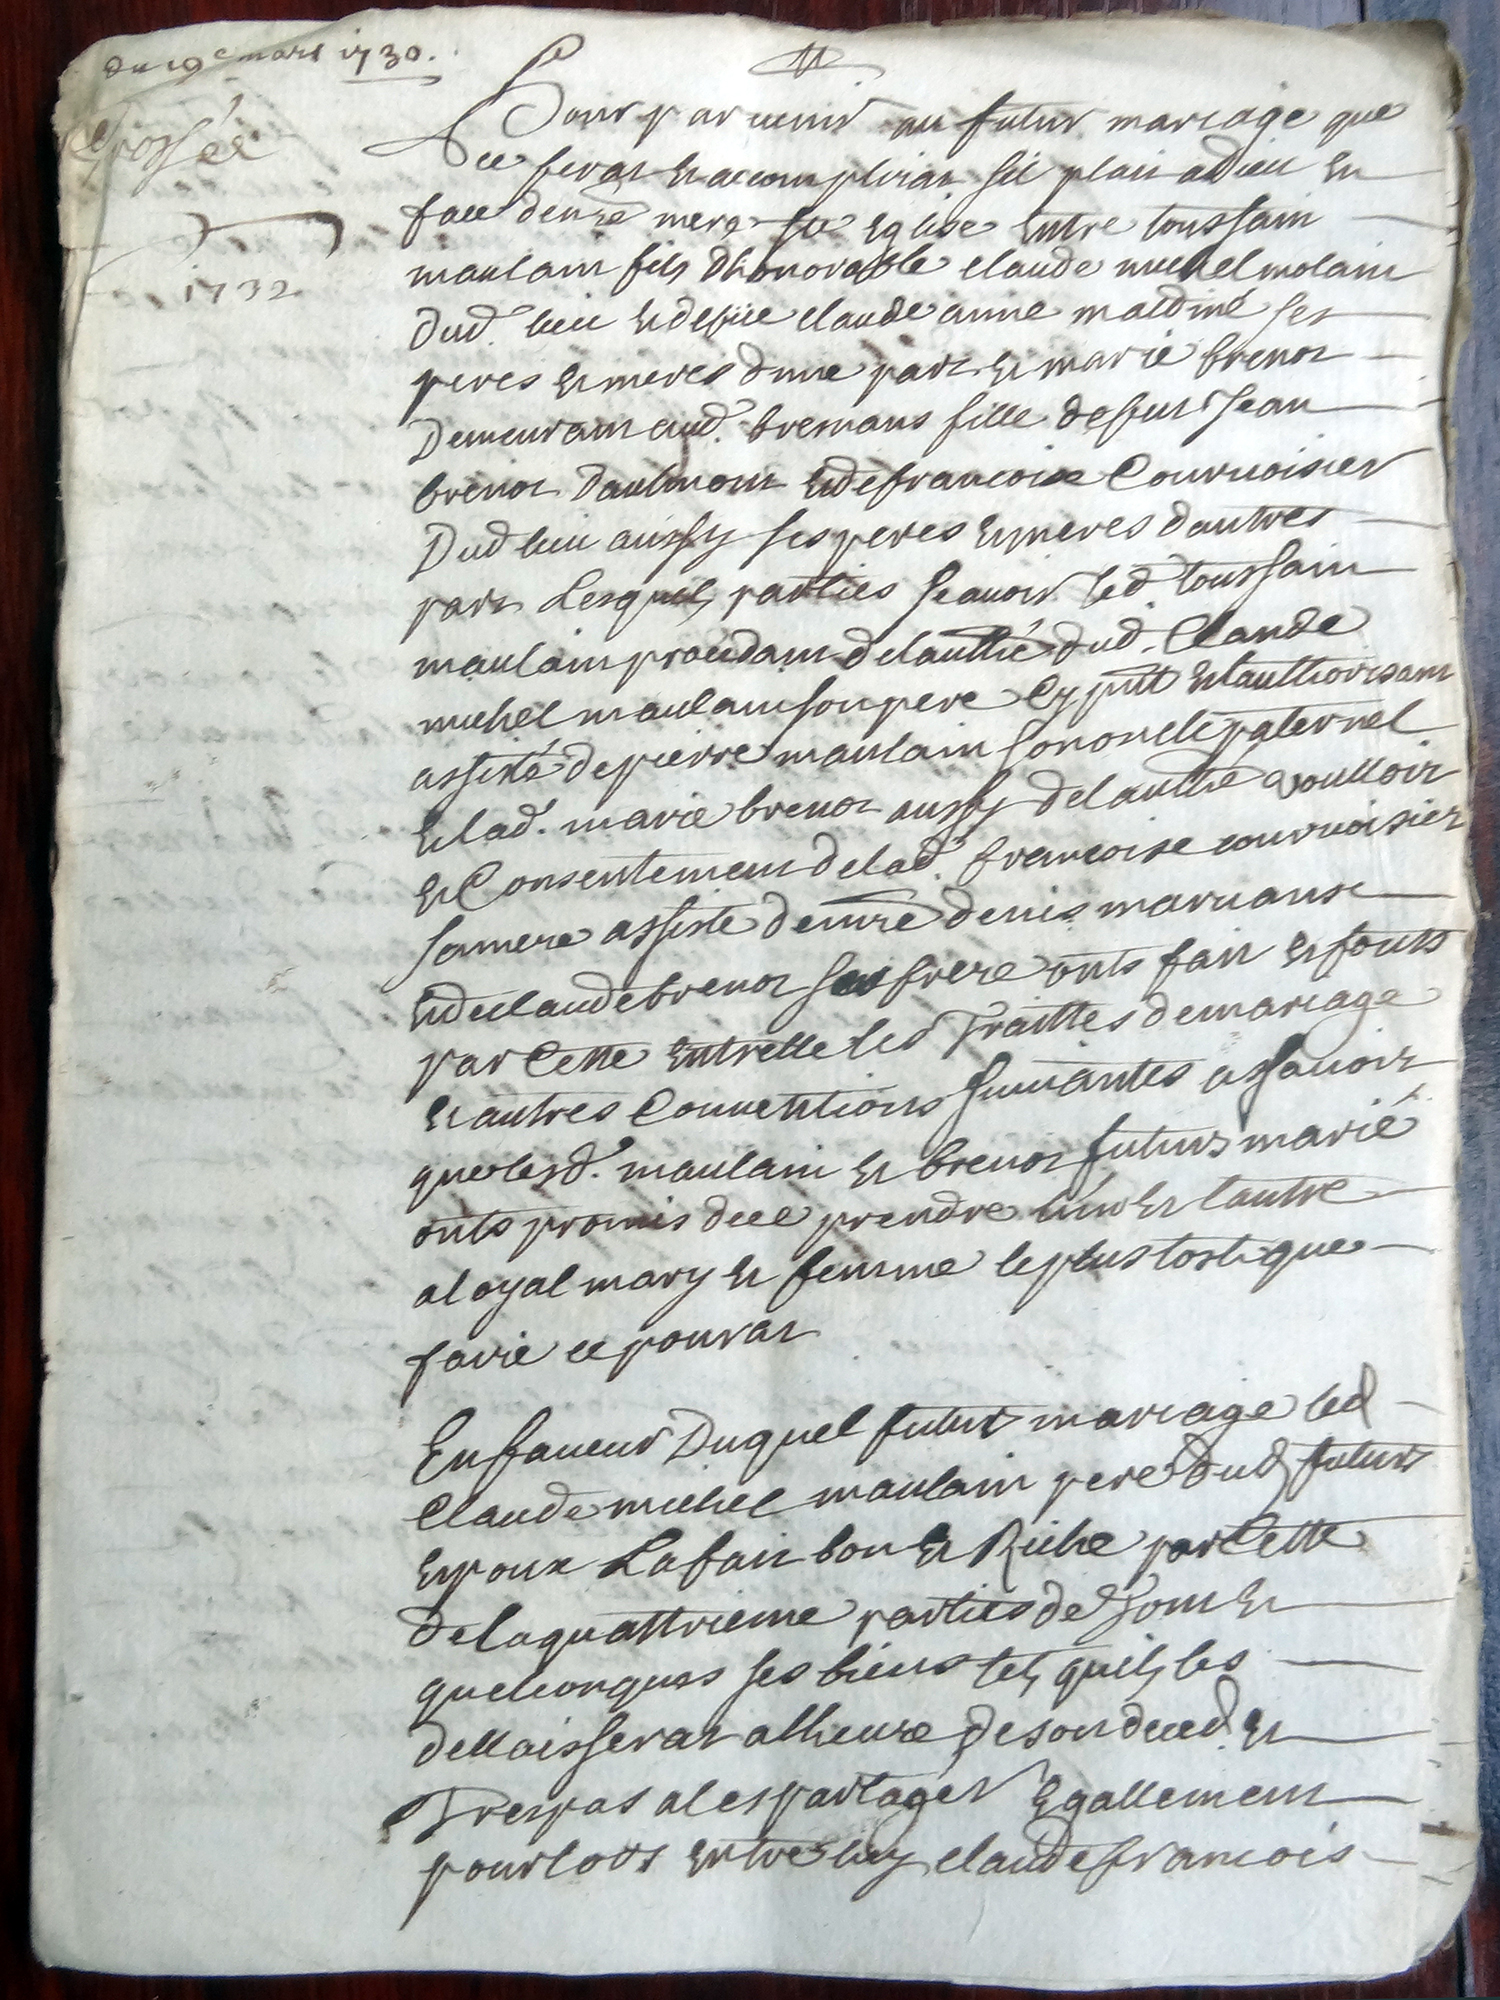 du 19e mars 1730.
Grossée
1732
Pour parvenir au futur mariage que
ce ferat et accomplirat sil plait a dieu en
face de nre mere ste Eglise Entre toussain
maulain fils dhonorable claude michel molain
dud. lieu et defüe claude anne maldiné ses
peres et meres dune part et marie brenot
Demeurant aud. bremans fille defunt Jean
brenot daulmont et de francoise Courvoisier
Dud lieu aussy ses peres et meres dautres
part Lesquels parties scavoir led toussain
maulain procedant de lauthé dud. Claude
michel maulain son pere Cy pnt et lauthorisant
assisté de pierre maulain son oncle paternel
et lad. marie brenot aussy de lauthé voulloir
et Consentement de lad. francoise courvoisier
sa mere assisté de mre denis
et de claude brenot son frere onts fait et fonts
par Cette entrelle les Traittes de mariage
et autres Conventions suivantes assavoir
que lesd. maulain et brenot futurs marié
onts promis de ce prendre lun et lautre
a loyal mary et femme le plus tost que
faire ce pourat
En faveur Duquel futur mariage led
Claude michel maulain pere dud futur
Epoux La fait bon et Riche par Cette
de la quattrieme parties de Tout et
quelconques ses biens tels quils les
dellaisserat alheure de son deced et
Trespas a les partager Egallement
pour lots entre luy claude francois